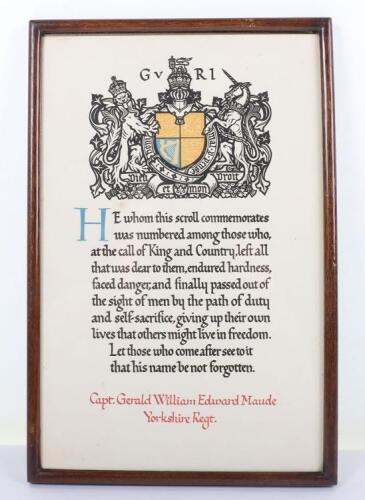 GvRI
Dieu et mon Droit
HE whom this scroll commemorates
was numbered among those who,
at the call of King and Country, left all
that was dear to them, endured hardness,
faced danger, and finally passed out of
the sight of men by the path of duty
and self-sacrifice, giving up their own
lives that others might live in freedom.
Let those who come after see to it
that his name be not forgotten.
Capt. Gerald William Edward Maude
Yorkshire Regt.